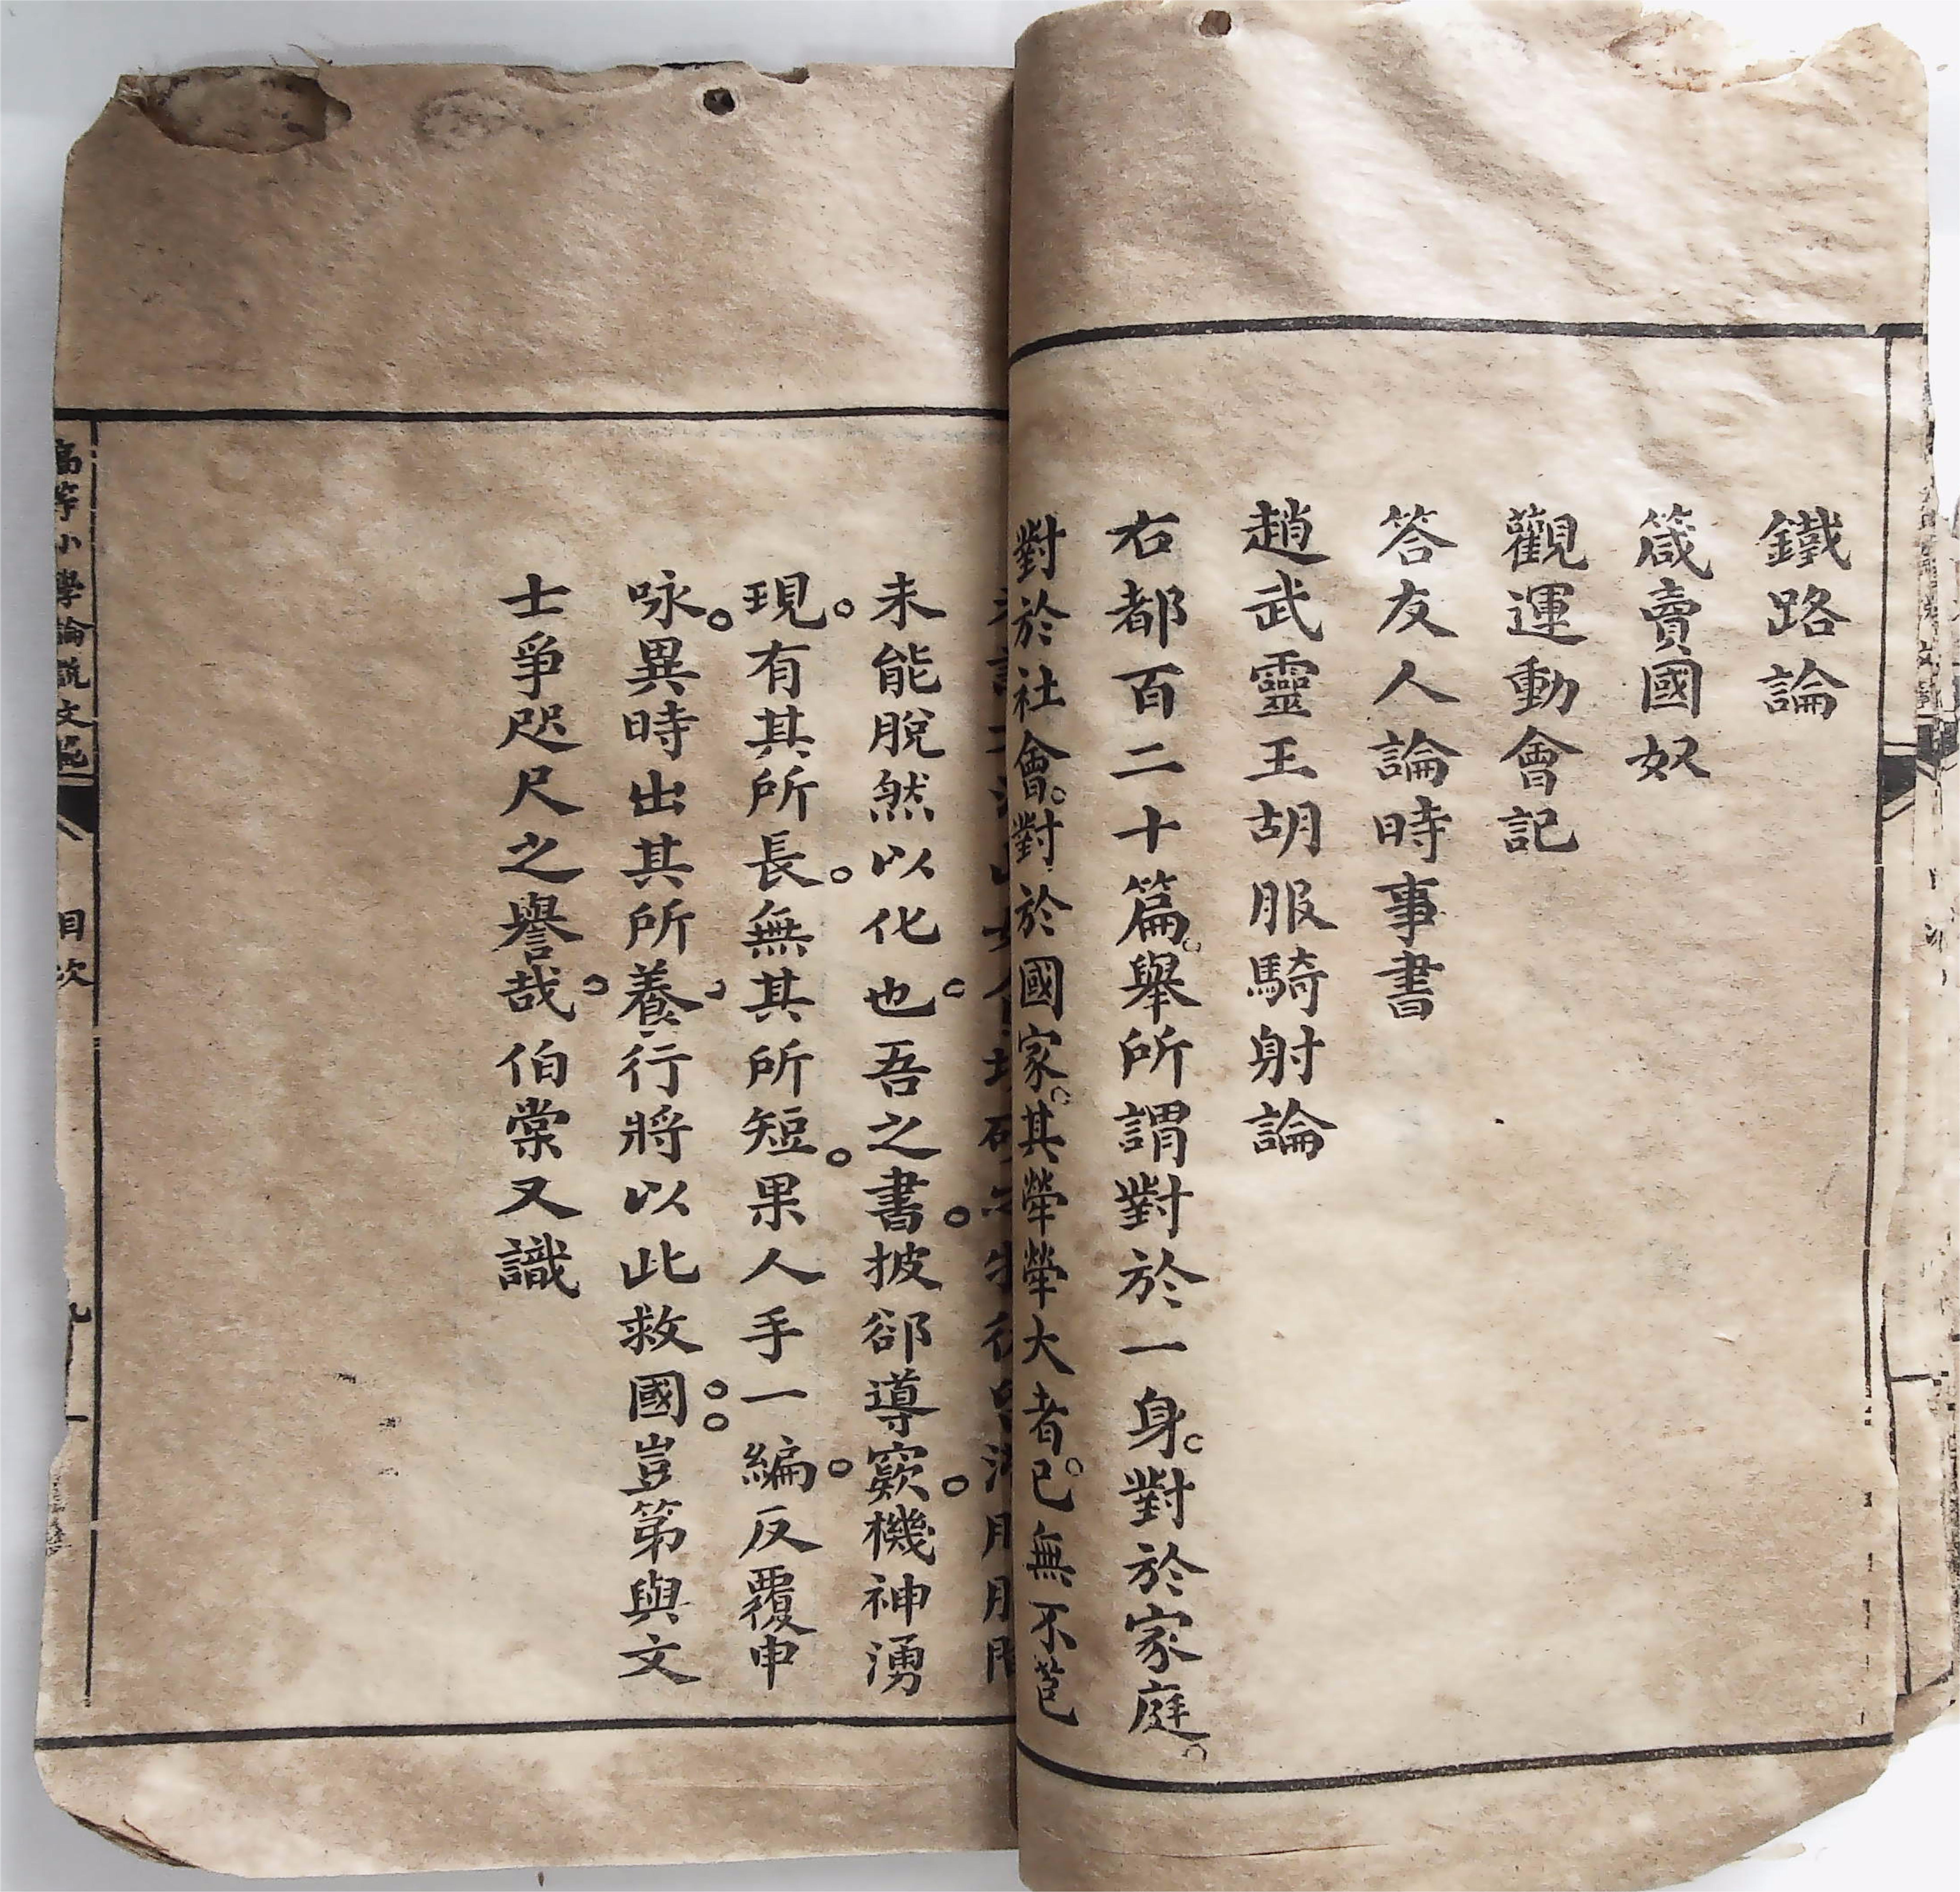 鐵路論
箴賣國奴
觀運動會記
答友人論時事書
趙武靈王胡服騎射論
右都百二十篇。舉所謂對於一身。對於家庭。
對於社會。對於國家。其犖犖大者。已無不苞
未能脫然以化也。吾之書。披郤導窾。機神湧
現。有其所長。無其所短。果人手一編。反覆申
咏。異時出其所養。行將以此救國。豈第與文
士爭咫尺之譽哉。伯棠又識
高等小學論說文範
目次
九